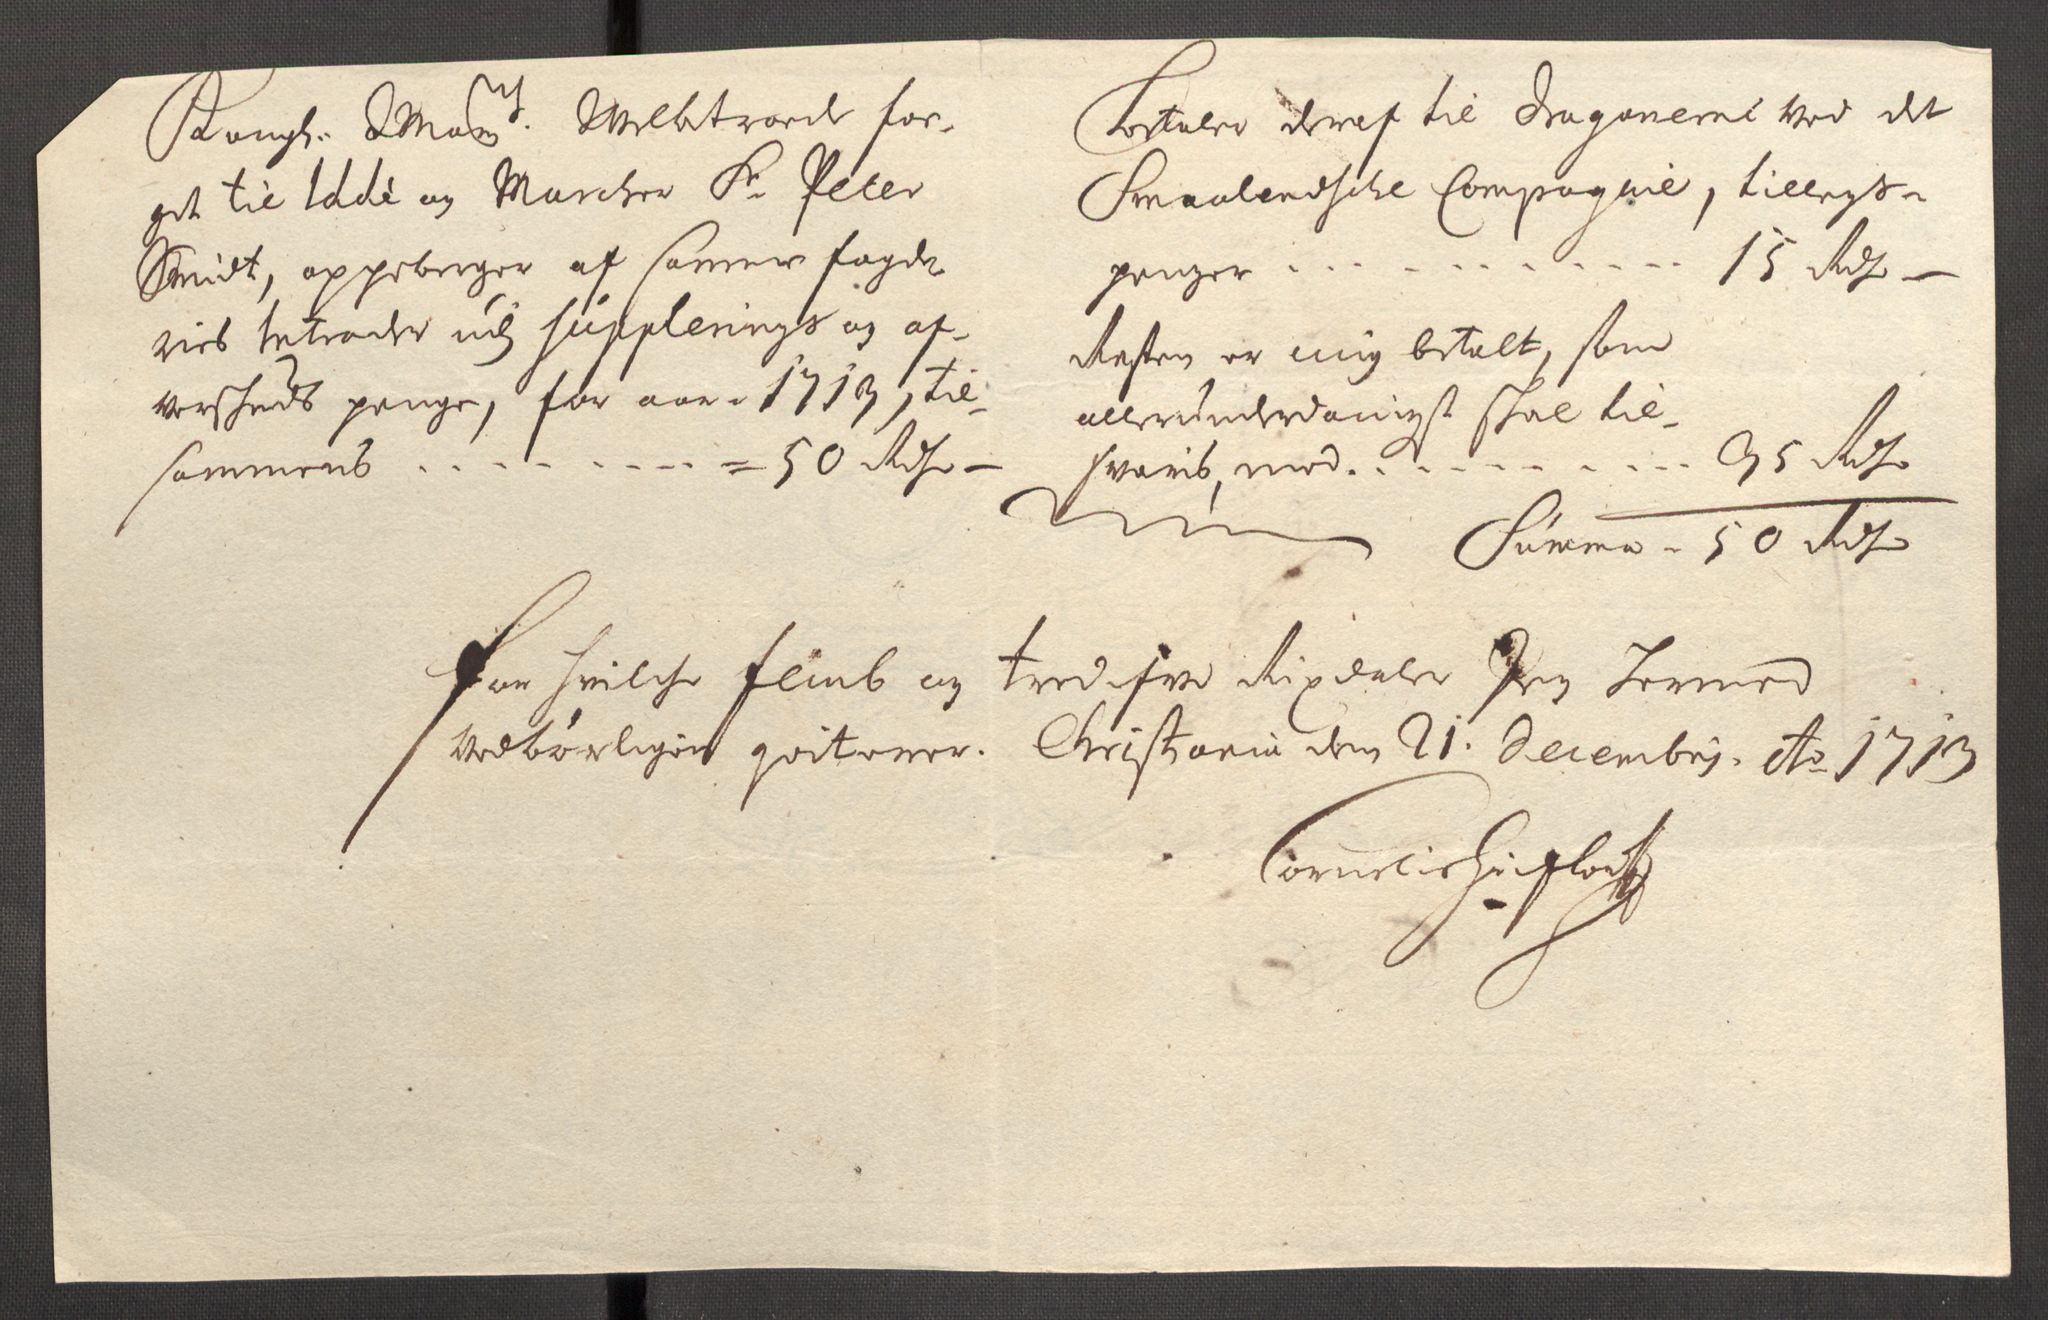 Kongl. Mayts. Welbetroede fog-
get til Idde og Marcher Sr. Peter
Smidt, oppeberger af samme fogde-
ries betroede supplerings og af-
penge, for aar 1713, til-
sammens . . . . . . . . . . = 50 Rdr –
betaler deraf til dragonerne ved det
Smaalendsche Compagnie, tillegs-
penger . . . . . . . . . . . . 15 Rdr –
Resten er mig betalt, som
allerunderdanigst skal til-
svaris, med . . . . . . . . . . 35 Rdr
Summa - 50 Rdr
For hvilche femb og tredisve Rixdaler Jeg hermed
vedbørligen qviterer. Christiania den 21. decembrj. Ao 1713
Cornelis